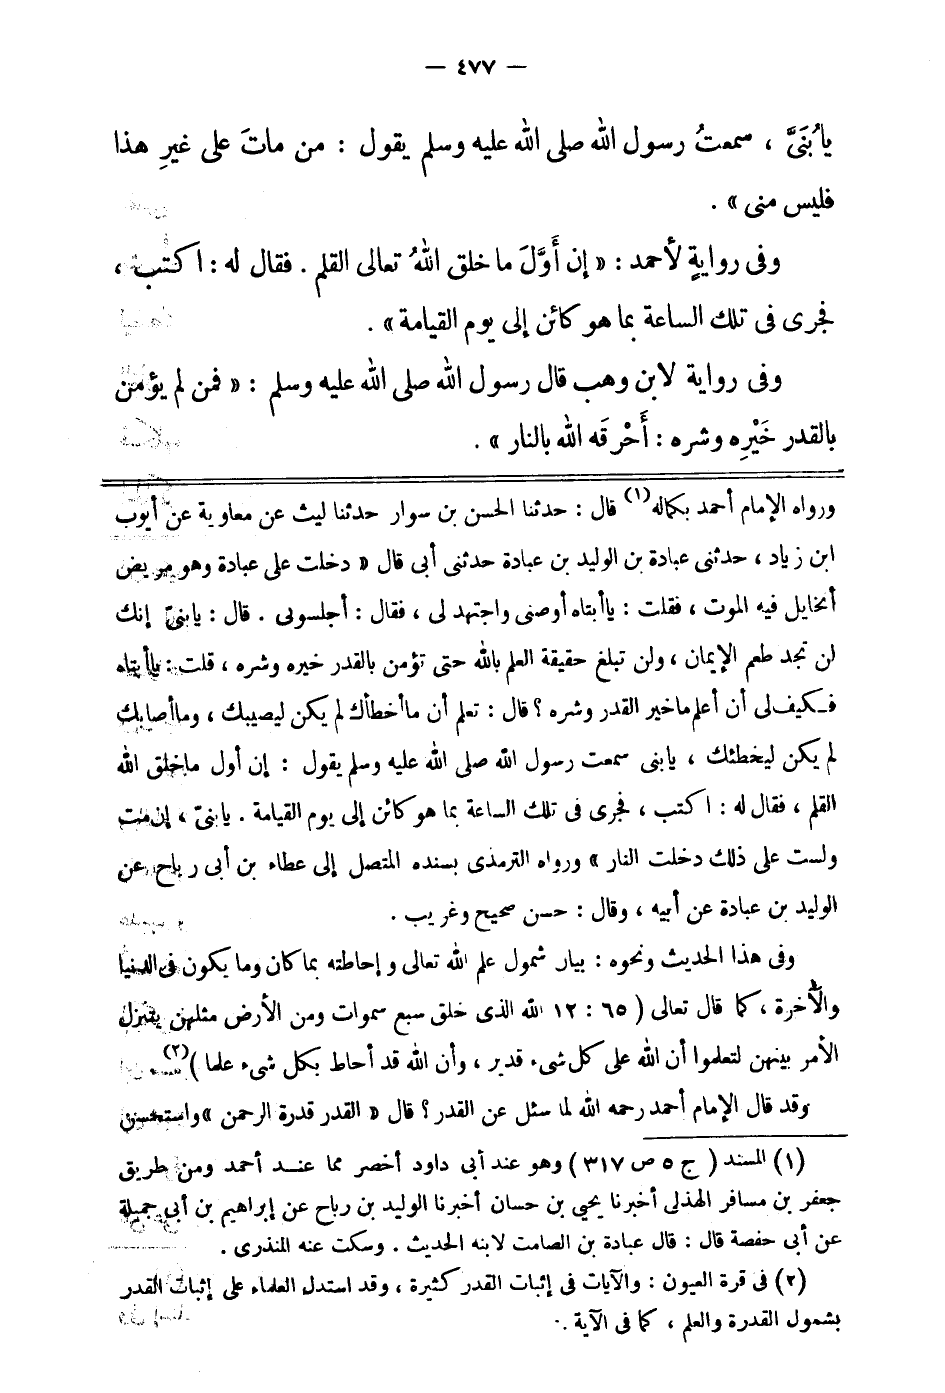 — ٤٧٧ —
يا بُنَيَّ ، سمعتُ رسول الله صلى الله عليه وسلم يقول : من ماتَ على غيرِ هذا
فليس منى » .
وفى روايةٍ لأحمد : « إن أَوَّلَ ما خلق اللهُ تعالى القلم . فقال له : اكتب ،
فجرى فى تلك الساعة بما هو كائن إلى يوم القيامة » .
وفى رواية لابن وهب قال رسول الله صلى الله عليه وسلم : « فمن لم يؤمن
بالقدر خَيْرِه وشره : أَحْرقَه الله بالنار » .
ورواه الإمام أحمد بكماله(١) قال : حدثنا الحسن بن سوار حدثنا ليث عن معاوية عن أيوب
ابن زياد ، حدثنى عبادة بن الوليد بن عبادة حدثنى أبى قال « دخلت على عبادة وهو مريض
أتخايل فيه الموت ، فقلت : يا أبتاه أوصنى واجتهد لى ، فقال : أجلسونى . قال : يا بنىّ إنك
لن تجد طعم الإيمان ، ولن تبلغ حقيقة العلم بالله حتى تؤمن بالقدر خيره وشره ، قلت : يا أبتاه
فكيف لى أن أعلم ما خير القدر وشره ؟ قال : تعلم أن ما أخطأك لم يكن ليصيبك ، وما أصابك
لم يكن ليخطئك ، يا بنى سمعت رسول الله صلى الله عليه وسلم يقول : إن أول ما خلق الله
القلم ، فقال له : اكتب ، فجرى فى تلك الساعة بما هو كائن إلى يوم القيامة . يا بنىّ ، إن مت
ولست على ذلك دخلت النار » ورواه الترمذى بسنده المتصل إلى عطاء بن أبى رباح عن
الوليد بن عبادة عن أبيه ، وقال : حسن صحيح وغريب .
وفى هذا الحديث ونحوه : بيان شمول علم الله تعالى وإحاطته بما كان وما يكون فى الدنيا
والآخرة ، كما قال تعالى ( ٦٥ : ١٢ الله الذى خلق سبع سموات ومن الأرض مثلهن يتنزل
الأمر بينهن لتعلموا أن الله على كل شىء قدير ، وأن الله قد أحاط بكل شىء علما )(٢)
وقد قال الإمام أحمد رحمه الله لما سئل عن القدر ؟ قال « القدر قدرة الرحمن » واستحسن
(١) المسند ( ج ٥ ص ٣١٧ ) وهو عند أبى داود أخصر مما عند أحمد ومن طريق
جعفر بن مسافر الهذلى أخبرنا يحيى بن حسان أخبرنا الوليد بن رباح عن إبراهيم بن أبى جميلة
عن أبى حفصة قال : قال عبادة بن الصامت لابنه الحديث . وسكت عنه المنذرى .
(٢) فى قرة العيون : والآيات فى إثبات القدر كثيرة ، وقد استدل العلماء على إثبات القدر
بشمول القدرة والعلم ، كما فى الآية .